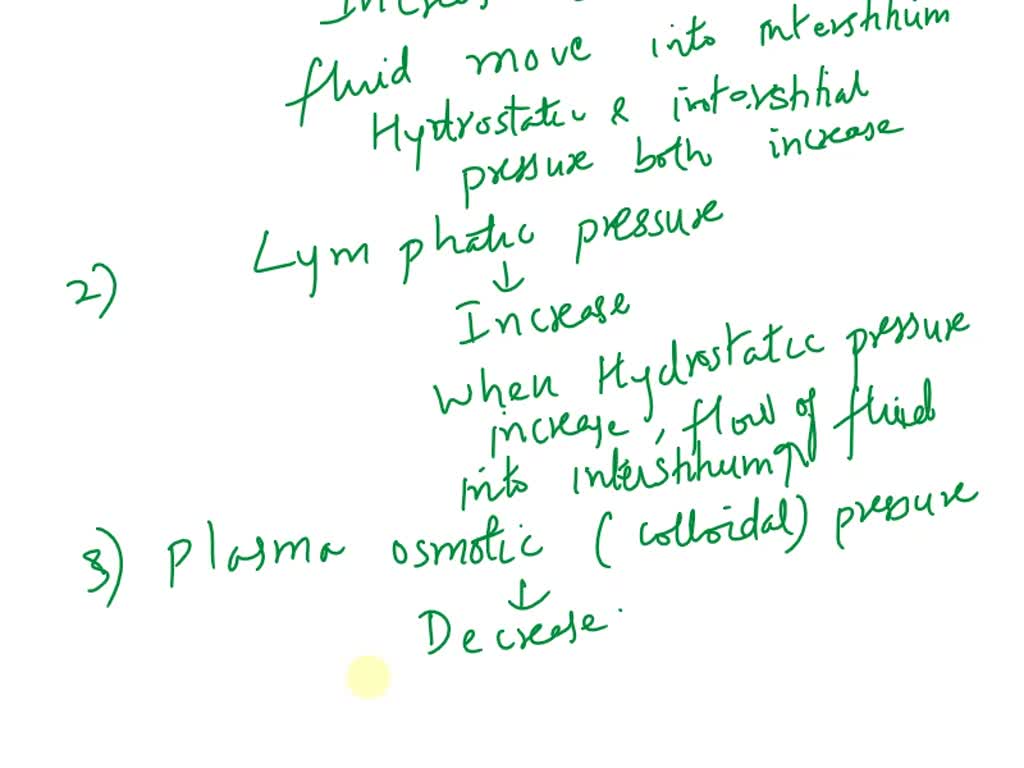 fluid move into interstitium
Hydrostatic & interstitial
pressure both increase
2) Lymphatic pressure
↓
Increase
When Hydrostatic pressure
increase, flow of fluid
into interstitium ↑
3) Plasma osmotic (colloidal) pressure
↓
Decrease.